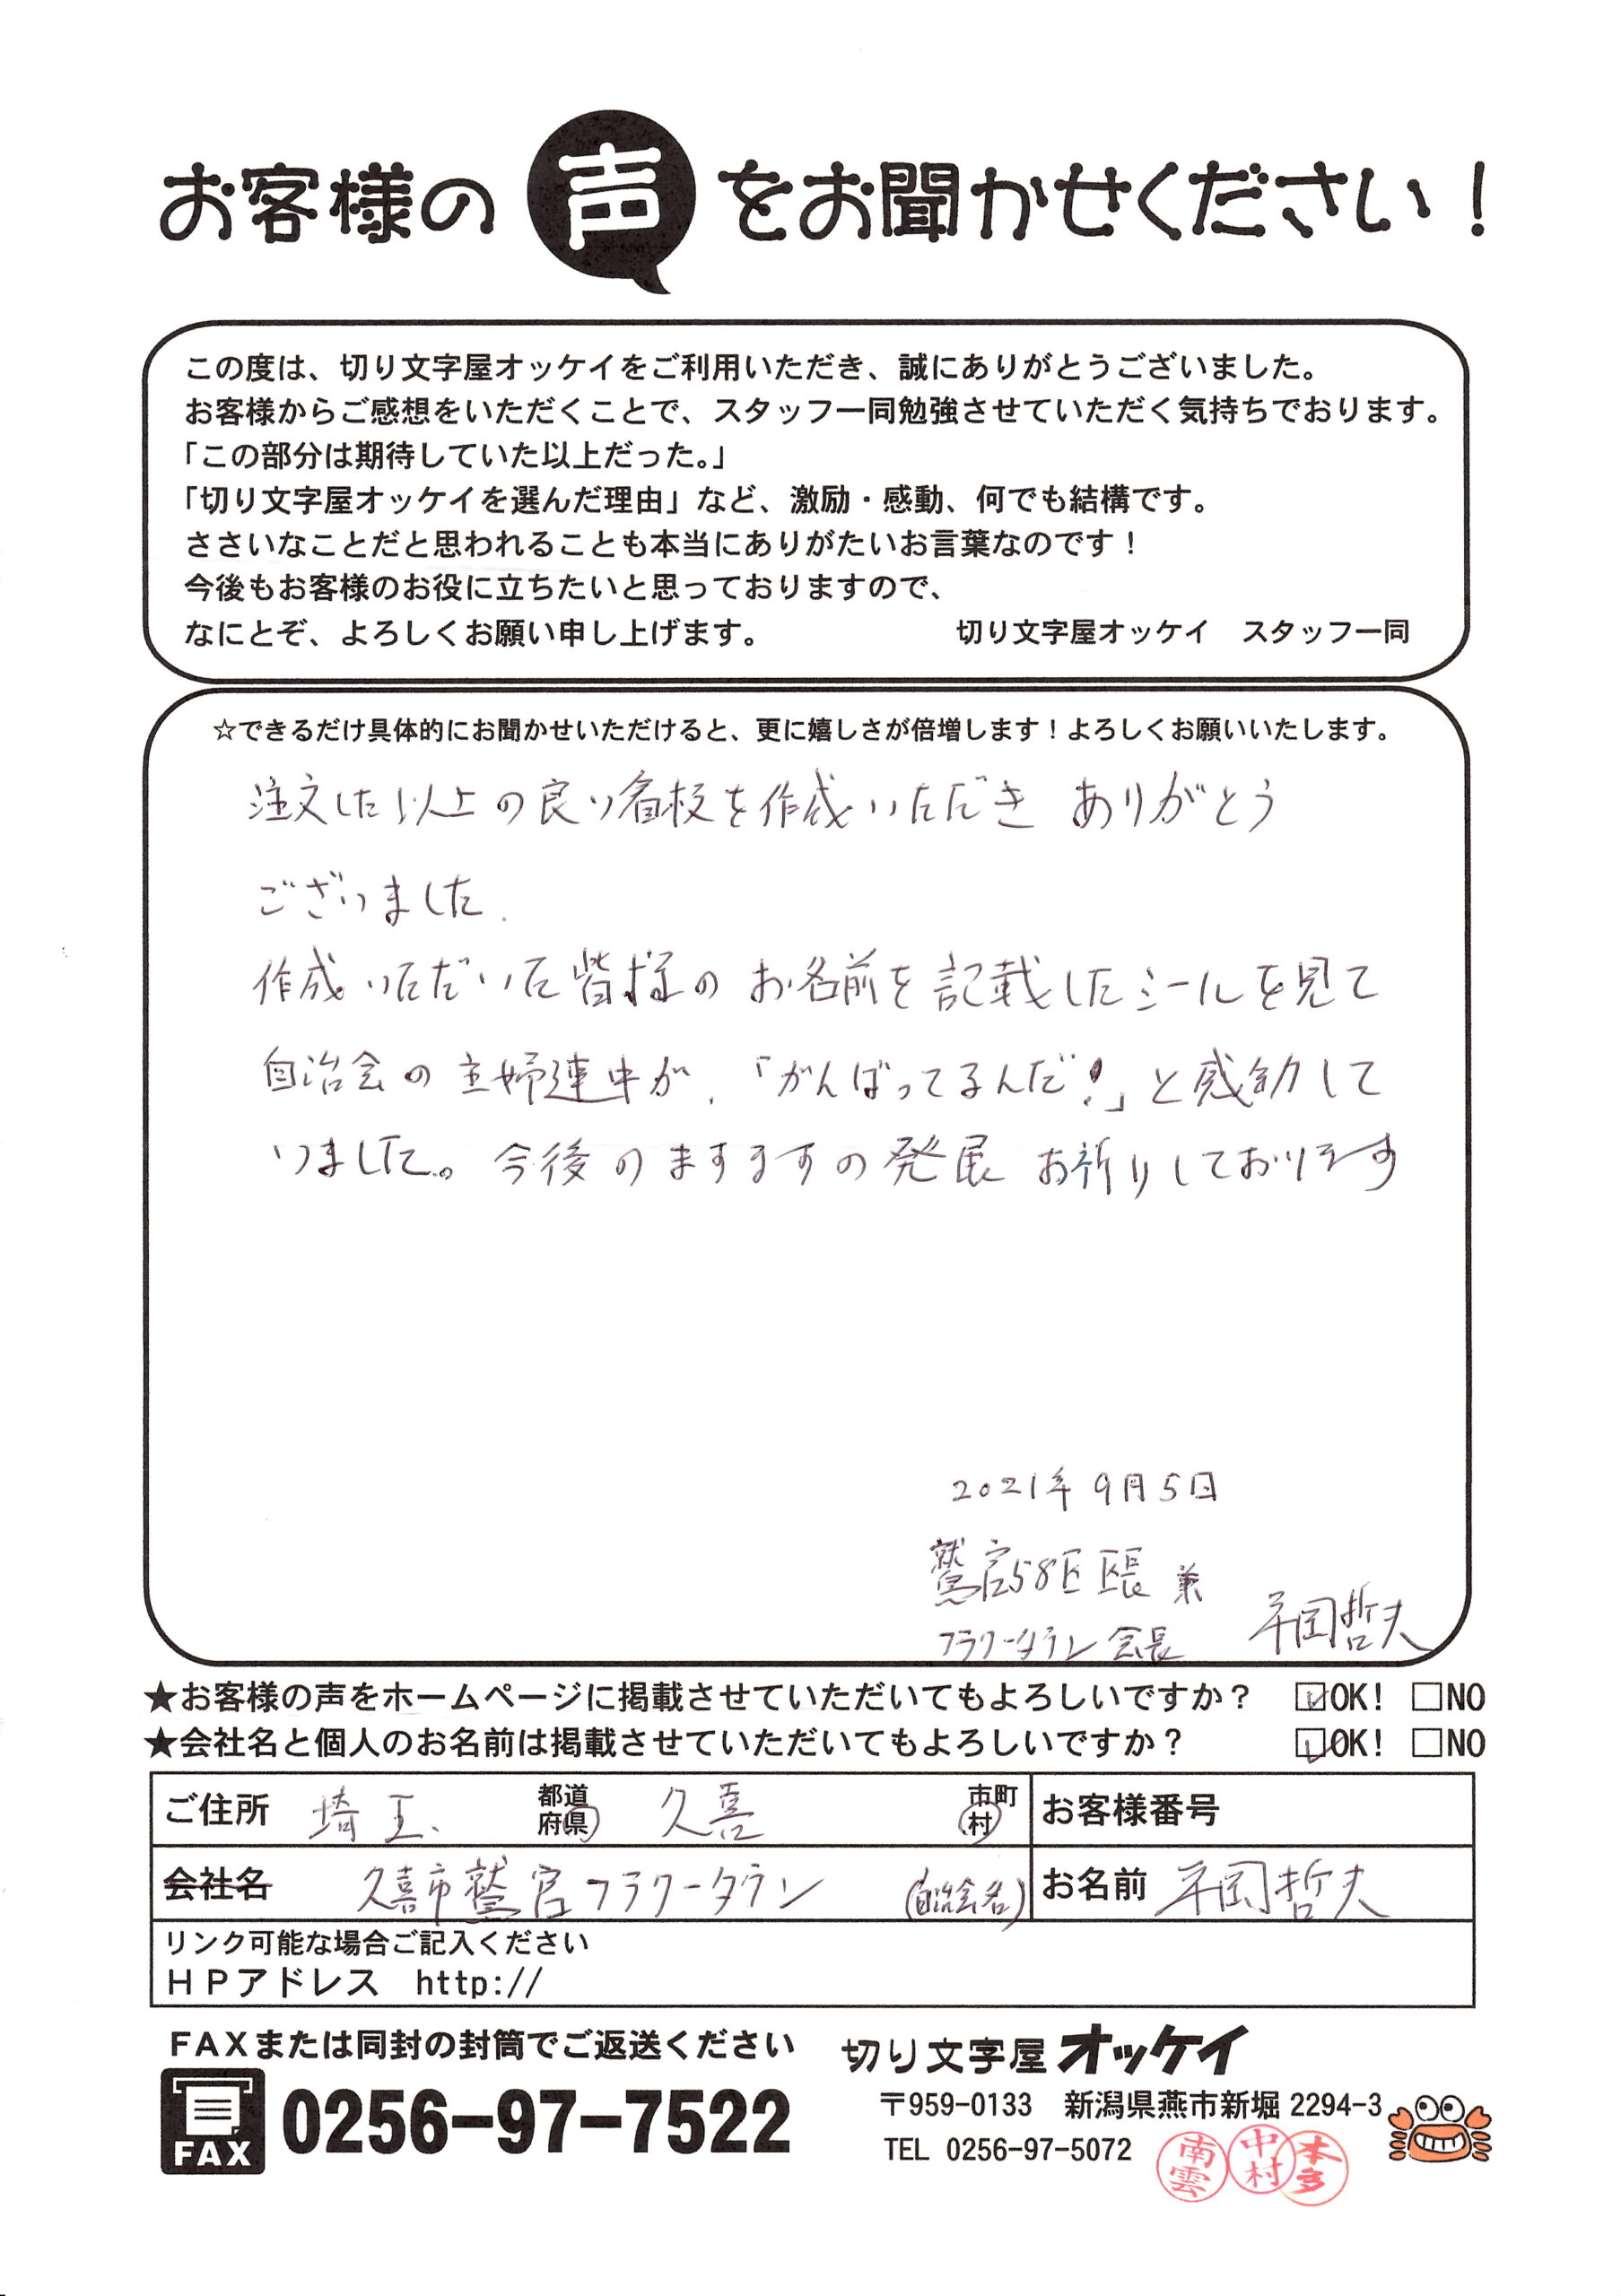 お客様の声をお聞かせください！
この度は、切り文字屋オッケイをご利用いただき、誠にありがとうございました。
お客様からご感想をいただくことで、スタッフ一同勉強させていただく気持ちでおります。
「この部分は期待していた以上だった。」
「切り文字屋オッケイを選んだ理由」など、激励・感動、何でも結構です。
ささいなことだと思われることも本当にありがたいお言葉なのです！
今後もお客様のお役に立ちたいと思っておりますので、
なにとぞ、よろしくお願い申し上げます。　切り文字屋オッケイ　スタッフ一同
☆できるだけ具体的にお聞かせいただけると、更に嬉しさが倍増します！よろしくお願いいたします。
注文した以上の良い看板を作成いただき ありがとう
ございました.
作成いただいた皆様の お名前を記載したシールを見て
自治会の主婦連中が、「がんばってるんだ!」と感動して
いました。今後のますますの発展 お祈りしております
2021年9月5日
鷲宮58区区長 兼
フラワータウン会長　平岡哲夫
★お客様の声をホームページに掲載させていただいてもよろしいですか？ ☑OK! □NO
★会社名と個人のお名前は掲載させていただいてもよろしいですか？ ☑OK! □NO
ご住所 埼玉 都道府県 久喜 市町村 お客様番号
会社名 久喜市鷲宮フラワータウン (自治会名) お名前 平岡哲夫
リンク可能な場合ご記入ください
ＨＰアドレス http://
ＦＡＸまたは同封の封筒でご返送ください
FAX 0256-97-7522
切り文字屋オッケイ
〒959-0133 新潟県燕市新堀 2294-3
TEL 0256-97-5072
南雲 中村 本多